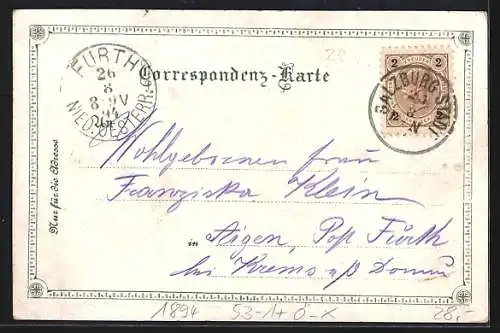 28
FURTH
26
8
8-9V
94
NIED. OESTERR.
Correspondenz-Karte
2 2
SALZBURG STADT
Nur für die Adresse
Wohlgebornen Frau
Franziska Klein
in Aigen, Post Fürth
bei Krems a/ß Donau
1894 S3-1+ Ö-X 28,-